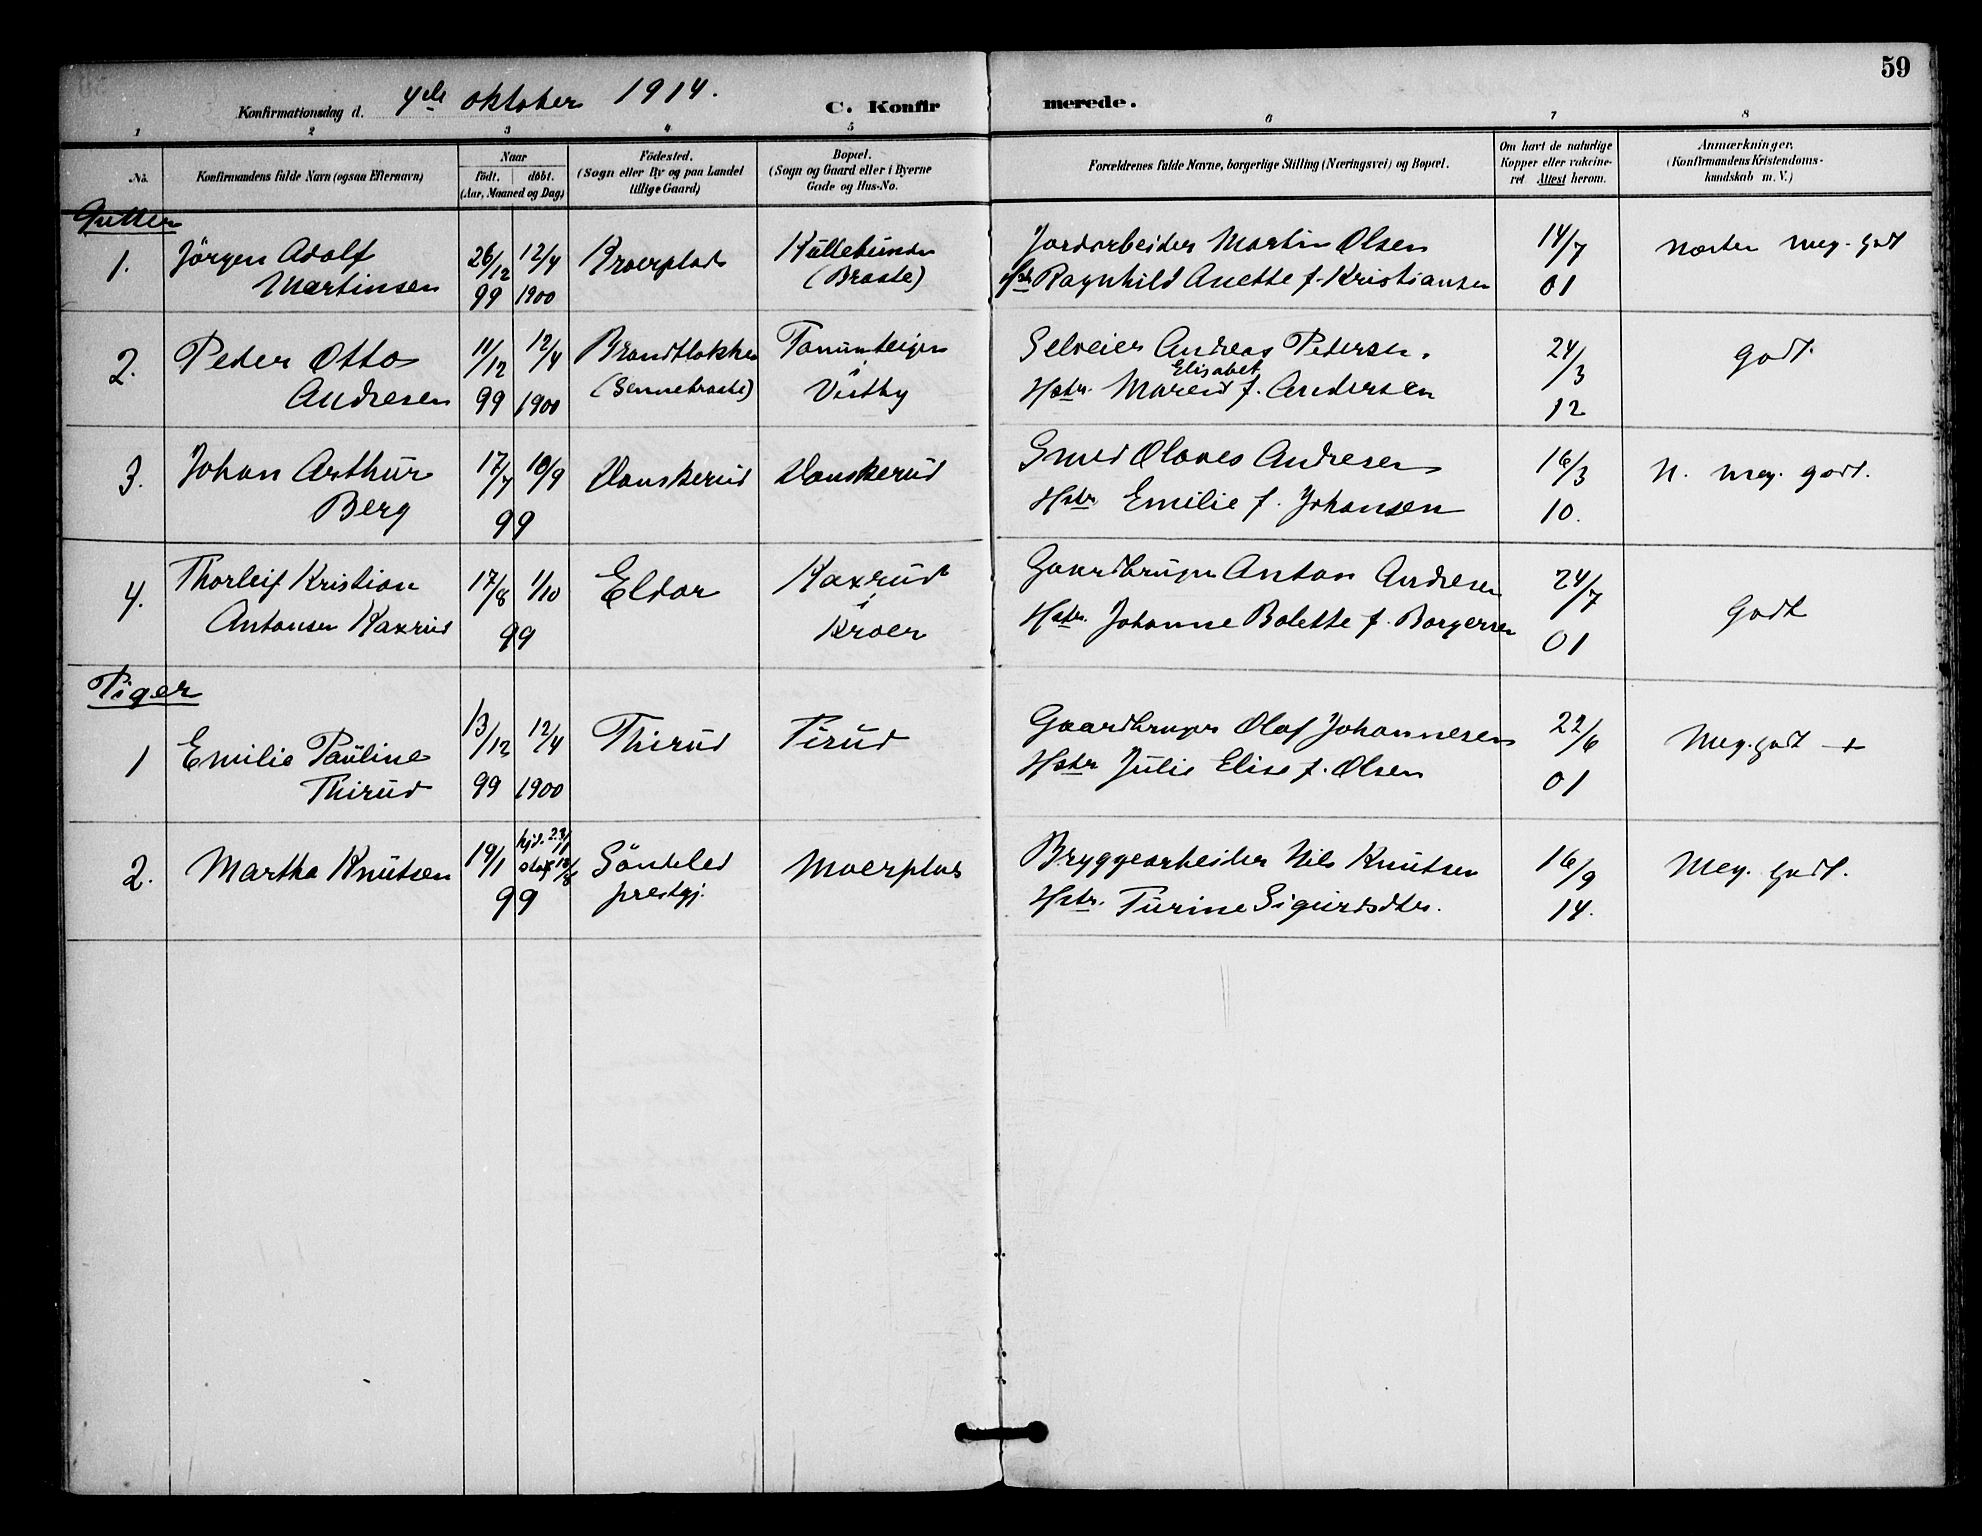 59
Konfirmationsdag d. 4de oktober 1914.
C. Konfirmerede.
1 2 3 4 5 6 7 8
No.
Konfirmandens fulde Navn (ogsaa Efternavn)
Naar
født. døbt.
(Aar, Maaned og Dag)
Födested.
(Sogn eller By og paa Landet
tillige Gaard)
Bopæl.
(Sogn og Gaard eller i Byerne
Gade og Hus-No.
Forældrenes fulde Navne, borgerlige Stilling (Næringsvei) og Bopæl.
Om havt de naturlige
Kopper eller vakcine-
ret Attest herom.
Anmærkninger,
(Konfirmandens Kristendoms-
kundskab m. V.)
Gutter
1. Jörgen Adolf
Martinsen
26/12 99
12/4 1900
Kroerplads
(Braate)
Jordarbeider Martin Olsen
Hstr Ragnhild Anette f. Kristiansen
14/7
01
Næsten meg. godt
2. Peder Otto
Andresen
11/12 99
12/4 1900
i
Vestby
Selveier Andreas Petersen.
Elisabet
Hstr. Maren f. Andersen
24/3
12
Godt.
3. Johan Arthur
Berg
17/7 10/9
99
Vanskerud
Vanskerud
Smed Olaves Andresen
Hstr. Emilie f. Johansen
16/3
10.
N. meg. godt.
4. Thorleif Kristian
Antonsen Kaxrud
17/8 1/10
99
Eldor
Kaxrud
i
Kroer
Gaardbruger Anton Andresen
Hstr. Johanne Bolette f. Borgersen
24/7
01
Godt
Piger
1 Emilie Pauline
Thirud
13/12 99
12/4 1900
Thirud
Tirud
Gaardbruger Olaf Johannesen
Hstr Julie Elise f. Olsen
22/6
01
Meg. godt +
2. Martha Knutsen
19/1
hjd. 23/1
99
Söndeled
prestgj.
Moerplas
Bryggearbeider Nils Knutsen
Hstr. Turine Sigurdsdtr.
16/9
14.
Meg. godt.